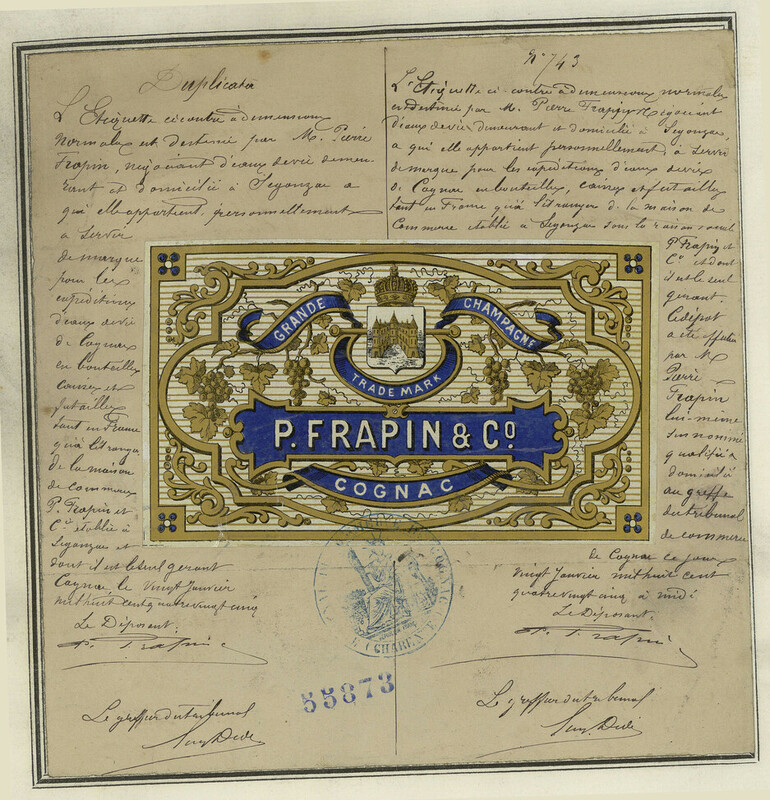 Duplicata
L'Etiquette ci contre à dimensions
normales est destinée par M. Pierre
Frapin, négociant d'eaux de vie demeu-
rant et domicilié à Segonzac a
qui elle appartient personnellement
à servir
de marque
pour les
expéditions
d'eaux de vie
de Cognac
en bouteilles
caisses et
futailles
tant en France
qu'à l'étranger
de la maison
de commerce
P. Frapin et
Cie établie à
Segonzac et
dont il est le seul gérant
Cognac le vingt Janvier
mil huit cent quatre vingt cinq
Le Déposant:
P. Frapin
Le greffier du tribunal
N° 743
L'Etiquette ci-contre à dimensions normales
est destinée par M. Pierre Frapin Négociant
d'eaux de vie demeurant et domicilié à Segonzac,
a qui elle appartient personnellement, à servir
de marque pour les expéditions d'eaux de vie
de Cognac en bouteilles, caisses et futailles
tant en France qu'à l'étranger de la maison de
Commerce établie à Segonzac sous la raison sociale
P. Frapin et
Cie et dont
il est le seul
gérant.
Ce dépôt
a été effectué
par M.
Pierre
Frapin
lui-même
sus nommé
qualifié
domicilié
au greffe
du tribunal
de commerce
de Cognac ce jour
vingt Janvier mil huit cent
quatre vingt cinq à midi
Le Déposant:
P. Frapin
Le greffier du tribunal
GRANDE CHAMPAGNE
TRADE MARK
P. FRAPIN & Co
COGNAC
(CHARENTE)
55873